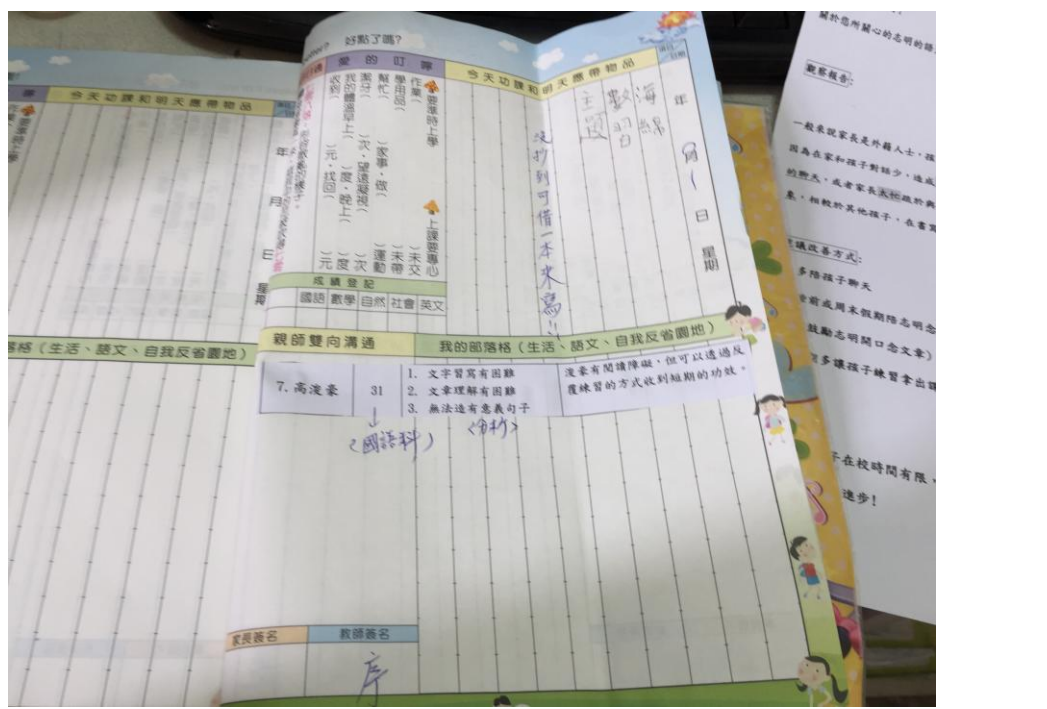 好點了嗎?
愛的叮嚀
今天功課和明天應帶物品
年
月
日
星期
海綿
數習
主題
沒抄到可借一本來寫!!
要準時上學
上課要專心
作業(
)未交
學用品(
)未帶
幫忙(
)家事,做(
)運動
潔牙(
)次,望遠凝視(
)次
我的體溫早上(
)度,晚上(
)度
收到(
)元,找回(
)元
成績登記
國語 數學 自然 社會 英文
親師雙向溝通
我的部落格(生活、語文、自我反省園地)
7. 高浚豪
31
1. 文字習寫有困難
2. 文章理解有困難
3. 無法造有意義句子
浚豪有閱讀障礙,但可以透過反
覆練習的方式收到短期的功效。
(國語科)
家長簽名
教師簽名
今天功課和明天應帶物品
年
月
日
星期
要準時上學
落格(生活、語文、自我反省園地)
關於您所關心的志明的語
觀察報告:
一般來說家長是外籍人士,孩
因為在家和孩子對話少,造成
的聊天,或者家長太忙疏於與
象,相較於其他孩子,在書寫
議改善方式:
多陪孩子聊天
前或周末假期陪志明念
鼓勵志明開口念文章)
多讓孩子練習拿出課
子在校時間有限,
進步!